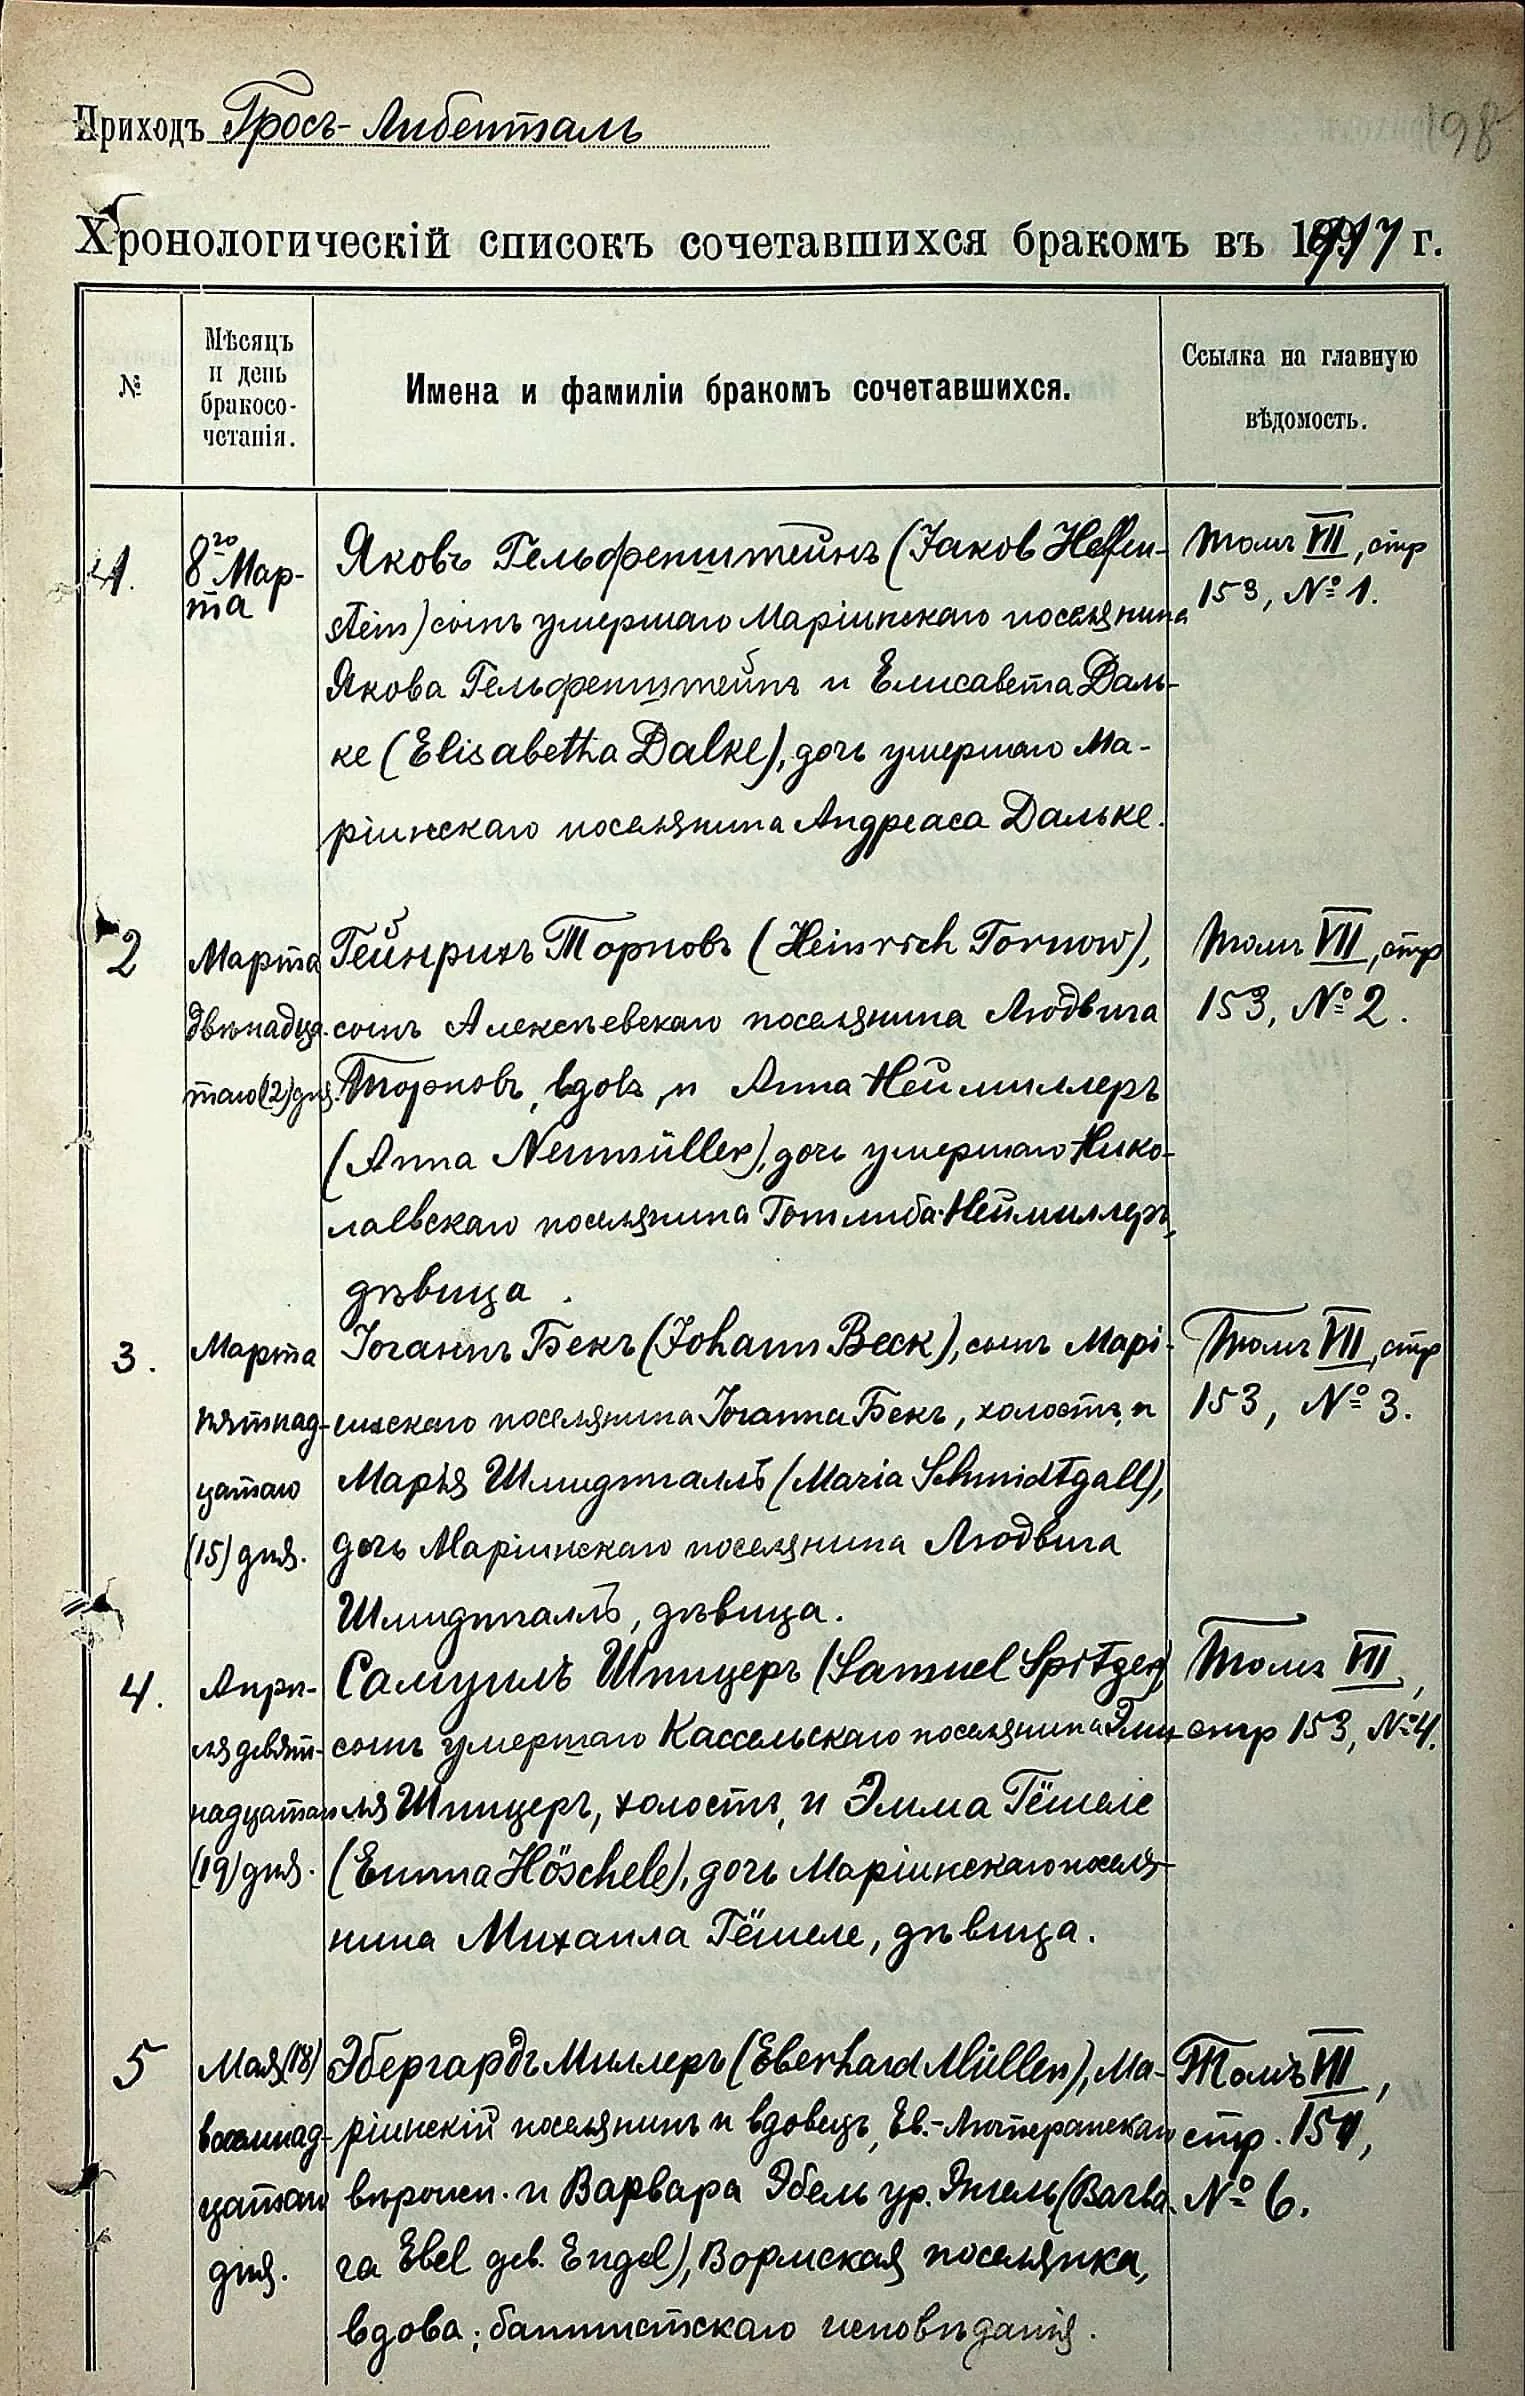 Приходъ Гросъ-Либенталь
198
Хронологическій списокъ сочетавшихся бракомъ въ 1917 г.
№
Мѣсяцъ
и день
бракосо-
четанія.
Имена и фамиліи бракомъ сочетавшихся.
Ссылка на главную
вѣдомость.
1.
8го Мар-
та
Яковъ Гельфенштейнъ (Jakob Helfen-
stein) сынъ умершаго Маріинскаго поселянина
Якова Гельфенштейнъ и Елисавета Даль-
ке (Elisabetha Dalke), дочь умершаго Ма-
ріинскаго поселянина Андреаса Дальке.
Томъ VII, стр
153, № 1.
2
Марта
двѣнадца-
таго (12) дня.
Гейнрихъ Торновъ (Heinrich Tornow),
сынъ Алексѣевскаго поселянина Людвига
Торновъ, вдовъ, и Анна Неймиллеръ
(Anna Neumüller), дочь умершаго Нико-
лаевскаго поселянина Готлиба Неймиллеръ,
дѣвица.
Томъ VII, стр
153, № 2.
3.
Марта
пятнад-
цатаго
(15) дня.
Іоганнъ Бекъ (Johann Beck), сынъ Марі-
инскаго поселянина Іоганна Бекъ, холостъ, и
Марія Шмидтгалль (Maria Schmidtgall),
дочь Маріинскаго поселянина Людвига
Шмидтгалль, дѣвица.
Томъ VII, стр
153, № 3.
4.
Апрѣ-
ля девят-
надцатаго
(19) дня.
Самуилъ Шпицеръ (Samuel Spitzer)
сынъ умершаго Кассельскаго поселянина Эми-
ля Шпицеръ, холостъ, и Эмма Гёшеле
(Emma Höschele), дочь Маріинскаго поселя-
нина Михаила Гёшеле, дѣвица.
Томъ VII,
стр 153, № 4.
5
Мая (18)
восемнад-
цатаго
дня.
Эбергардъ Миллеръ (Eberhard Müller), Ма-
ріинскій поселянинъ и вдовецъ, Ев.-Лютеранскаго
вѣроисп. и Варвара Эбель ур. Энгель (Barba-
ra Ebel geb. Engel), Вормская поселянка,
вдова; баптистскаго исповѣданія.
Томъ VII,
стр. 154,
№ 6.